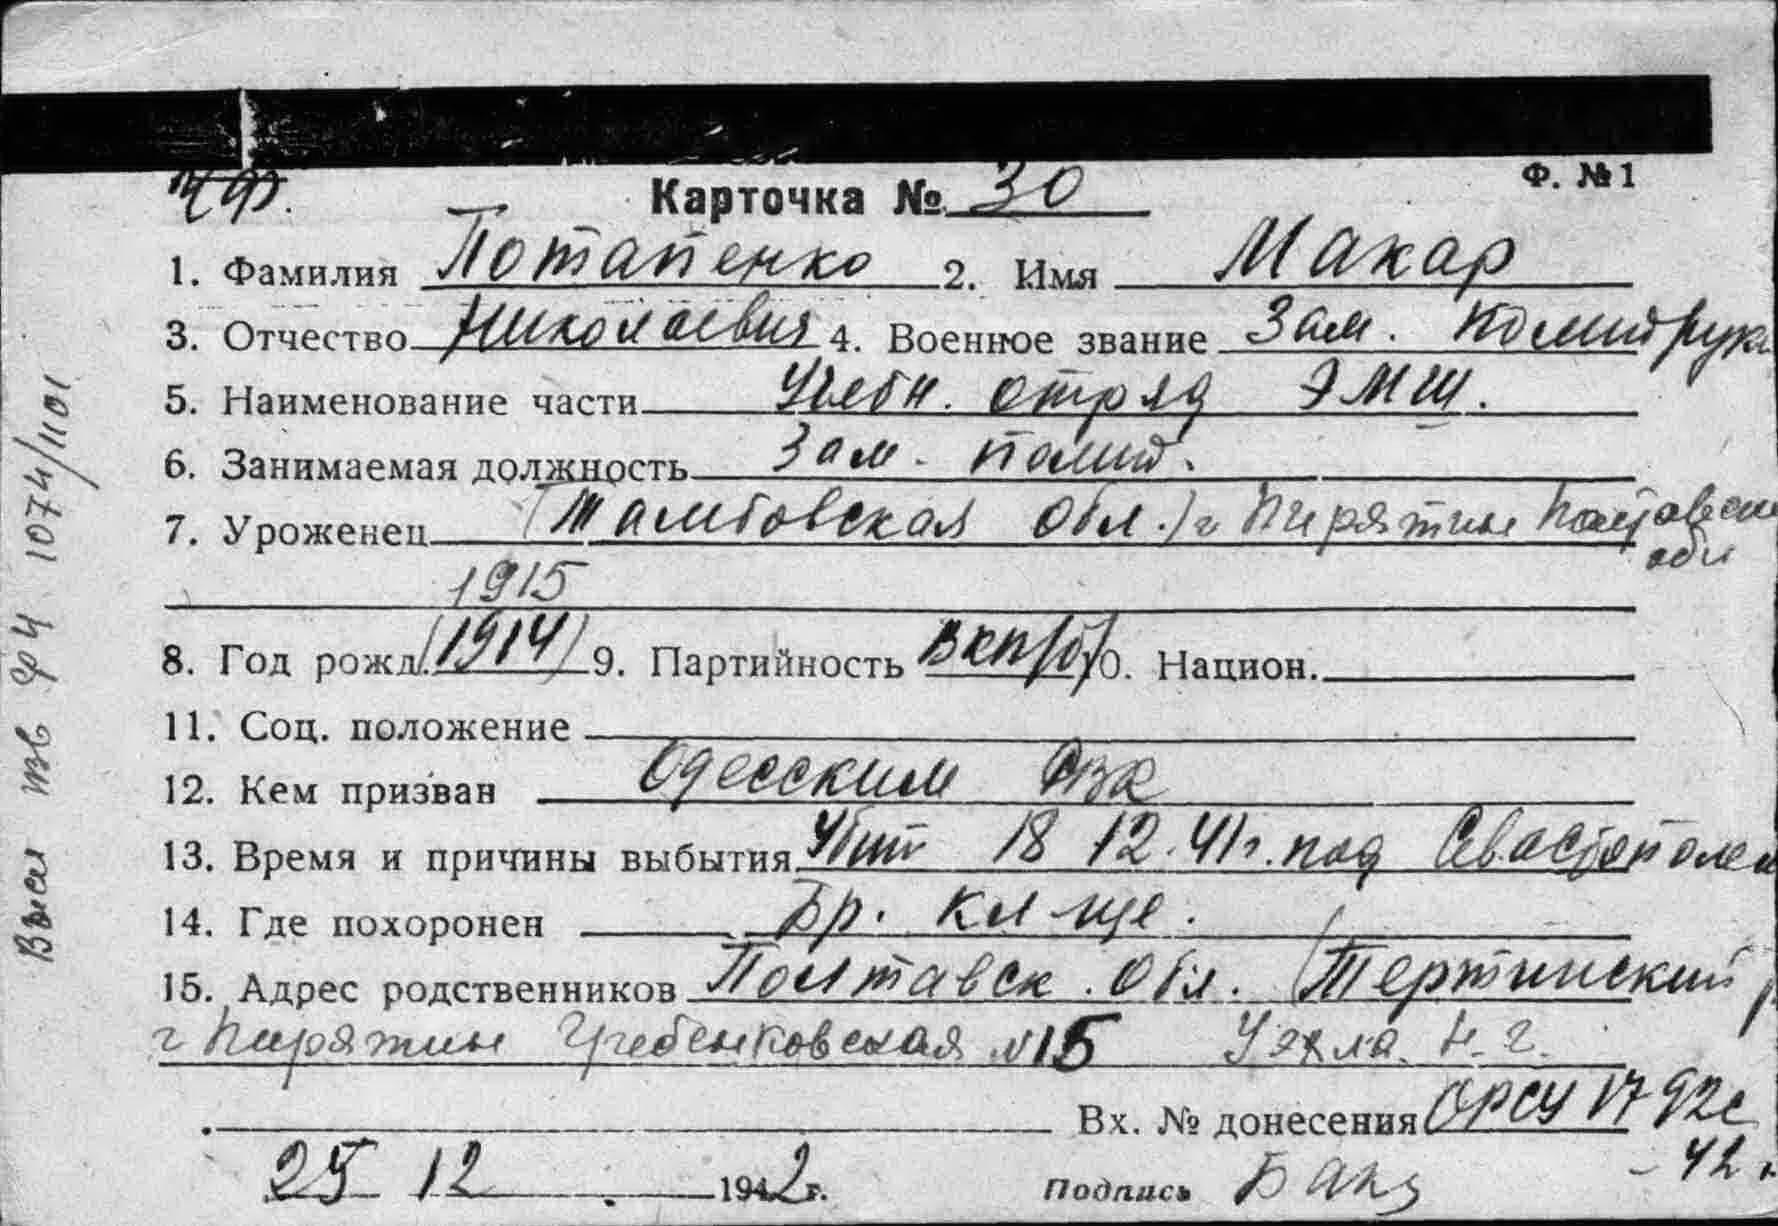 ЧФ.
Карточка № 30
Ф. №1
1. Фамилия Потапенко 2. Имя Макар
3. Отчество Николаевич 4. Военное звание Зам. политрука
5. Наименование части Учебн. отряд ЭМШ.
6. Занимаемая должность Зам. полит.
7. Уроженец (Тамбовская обл.) г Пирятин Полтавск
обл
1915
8. Год рожд. (1914) 9. Партийность ВКП/б/ 10. Национ.
11. Соц. положение
12. Кем призван Одесским РВК
13. Время и причины выбытия Убит 18 12.41г. под Севастополем
14. Где похоронен Бр. кл-ще.
15. Адрес родственников Полтавск. обл. (
г Пирятин Гребенковская №15 Н. Г.
Вх. № донесения ОРСУ 1792с
-42 г
25 12 1942г.
Подпись
1074/1101